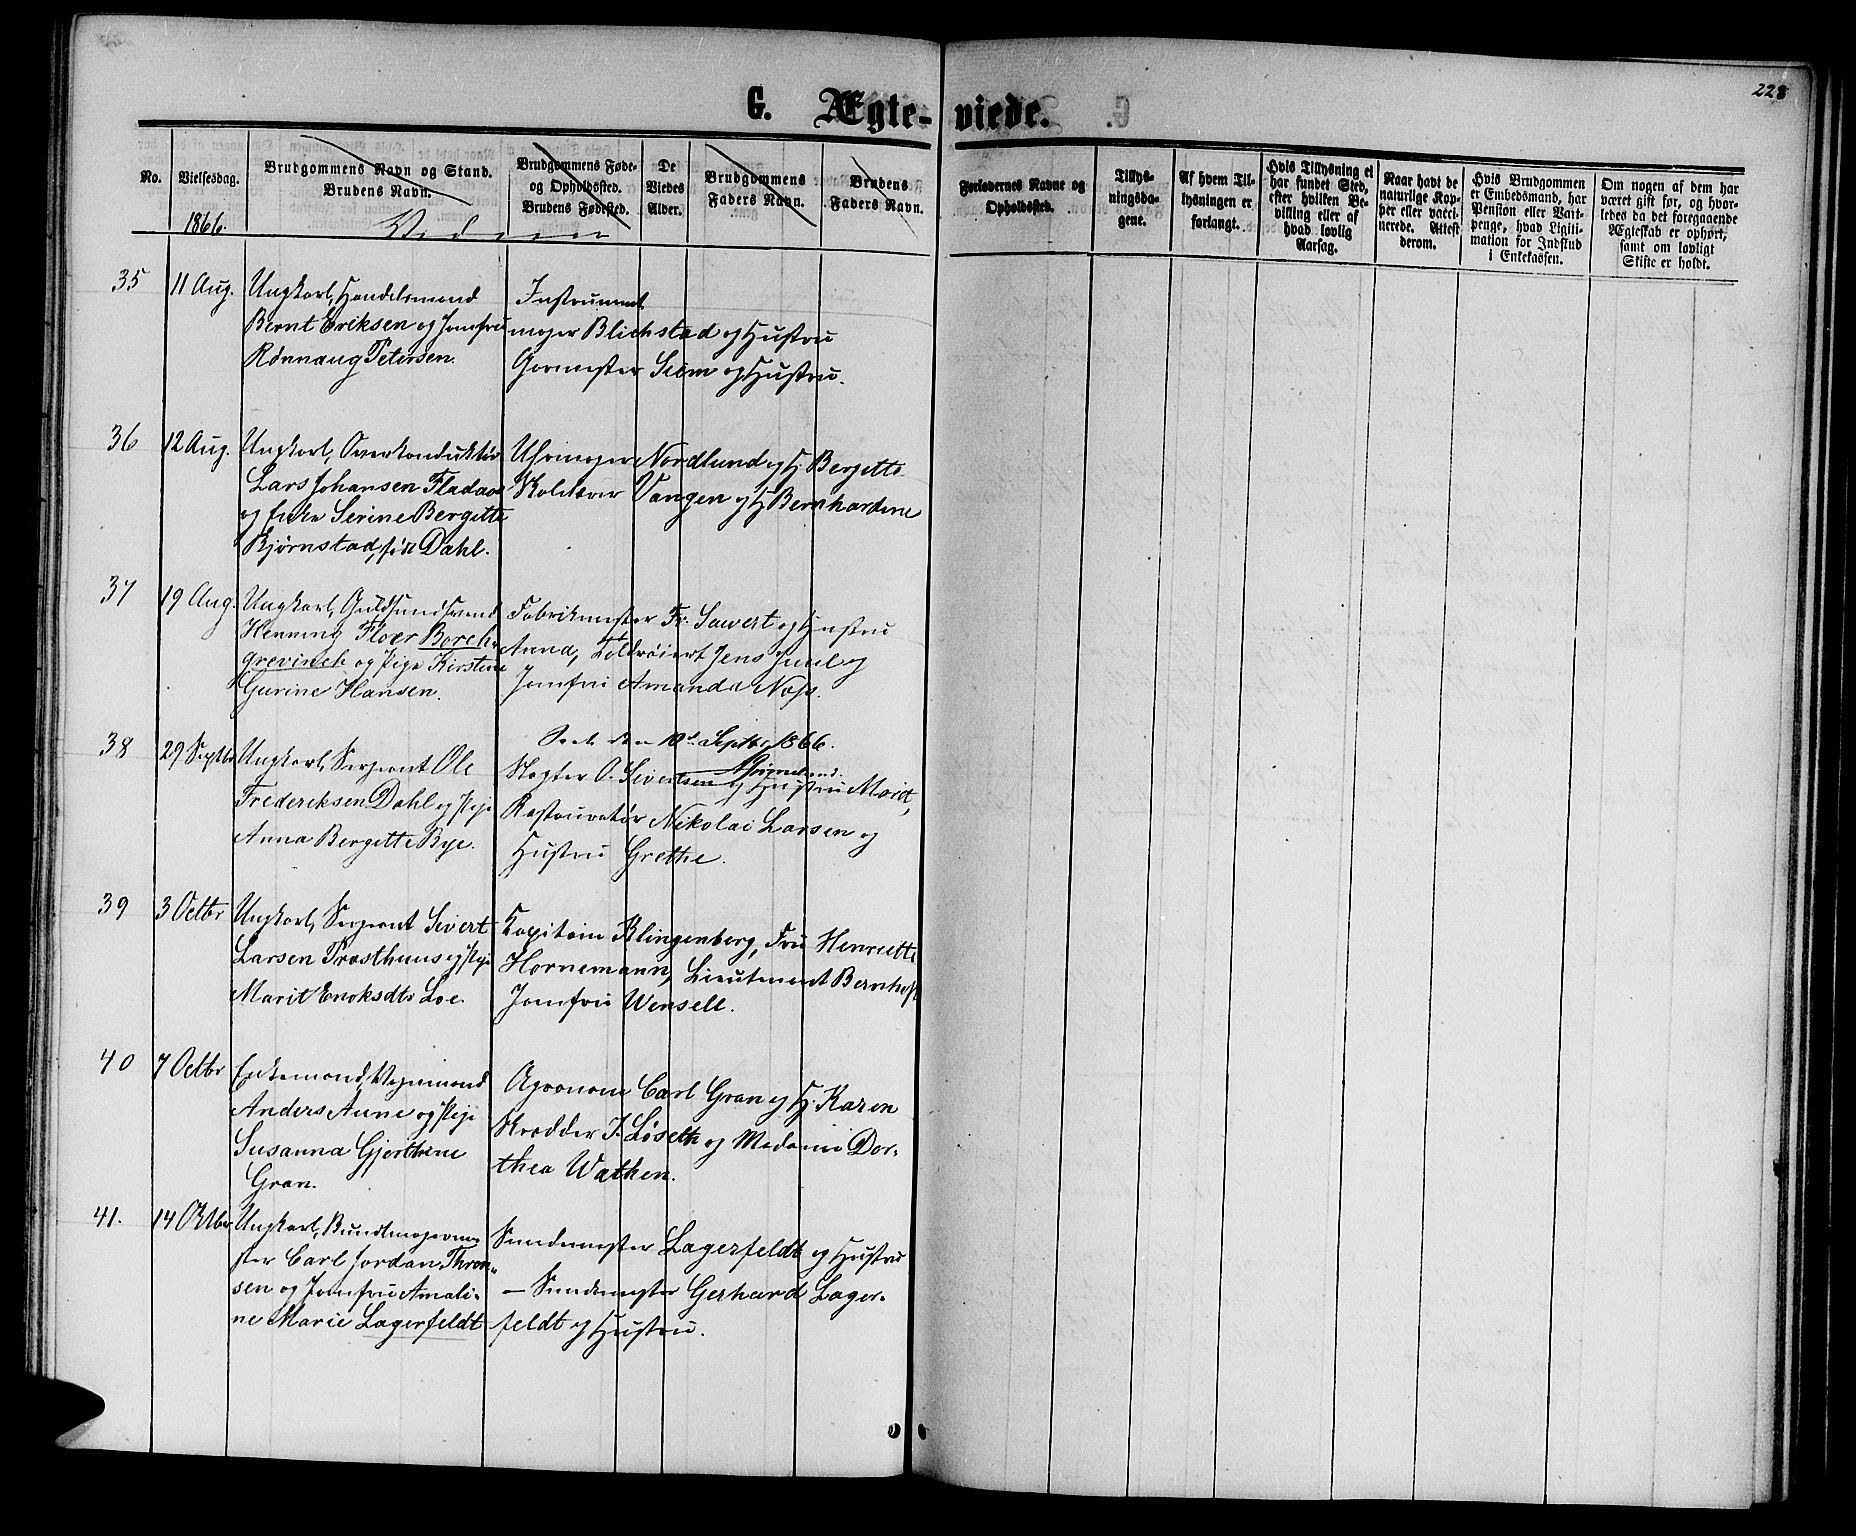 228
G. Ægte-viede.
No.
Vielsesdag.
1866.
Brudgommens Navn og Stand.
Brudens Navn.
Brudgommens Føde-
og Opholdssted.
Brudens Fødested.
De
Viedes
Alder.
Brudgommens
Faders Navn.
Brudens
Faders Navn.
Forlovernes Navne og
Opholdssted.
Tillys-
ningsda-
gene.
Af hvem Til-
lysningen er
forlangt.
Hvis Tillysning ei
har fundet Sted,
efter hvilken Be-
villing eller af
hvad lovlig
Aarsag.
Naar havt de
naturlige Kop-
per eller vacci-
nerede. Attest
derom.
Hvis Brudgommen
er Enbedsmand, har
Pension eller Vart-
penge, hvad Ligiti-
mation for Indskud
i Enkekassen.
Om nogen af dem har
været gift før, og hvor-
ledes da det foregaaende
Ægteskab er ophørt,
samt om lovligt
Skifte er holdt.
35
11 Aug.
Ungkarl, Handelsmand
Bernt Eriksen og Jomfru
Rønnaug Petersen.
Instrument
mager Blichstad og Hustru
Garmester Seem og Hustru.
36
12 Aug.
Ungkarl, Overkonduktør
Lars Johansen
og Enke Serine Bergette
Bjørnstad, fød Dahl.
Uhrmager Nordlund og H. Bergette
Vangen og H Bernhardine
37
19 Aug.
Ungkarl, Guldsmedsvend
Henning Floer Borch-
grevinck og Pige Kirstine
Gurine Hansen.
Fabrikmester Fr. Sawert og Hustru
Anna, Jens Juul og
Jomfru Amanda
38
29 Septbr
Ungkarl, Sergeant Ole
Frederiksen Dahl og Pige
Anna Bergette Bye.
den 10de Septbr 1866.
Slagter O. Sivertsen og Hustru Marit,
Restauratør Nikolai Larsen og
Hustru Grethe.
39
3 Octbr
Ungkarl, Sergeant Sivert
Larsen Prasthuus og Pige
Marit Enoksdtr Loe.
Kapitain Klingenberg, Fru Henriette
Hornemann, Lieutenant Bernhoft
Jomfru Wensell.
40
7 Octbr
Enkemand, Vognmand
Anders Aune og Pige
Susanna Gjerthrine
Gran.
Agronom Carl Gran og H. Karen
Skrædder J. Løseth og Madame Dor-
thea Wathen.
41.
14 Oktbr
Ungkarl, Buntmagerme-
ster Carl Jordan Thron-
sen og Jomfru Amali-
ne Marie Lagerfeldt
Smedemester Lagerfeldt og Hustru
– Smedemester Gerhard Lager-
feldt og Hustru.